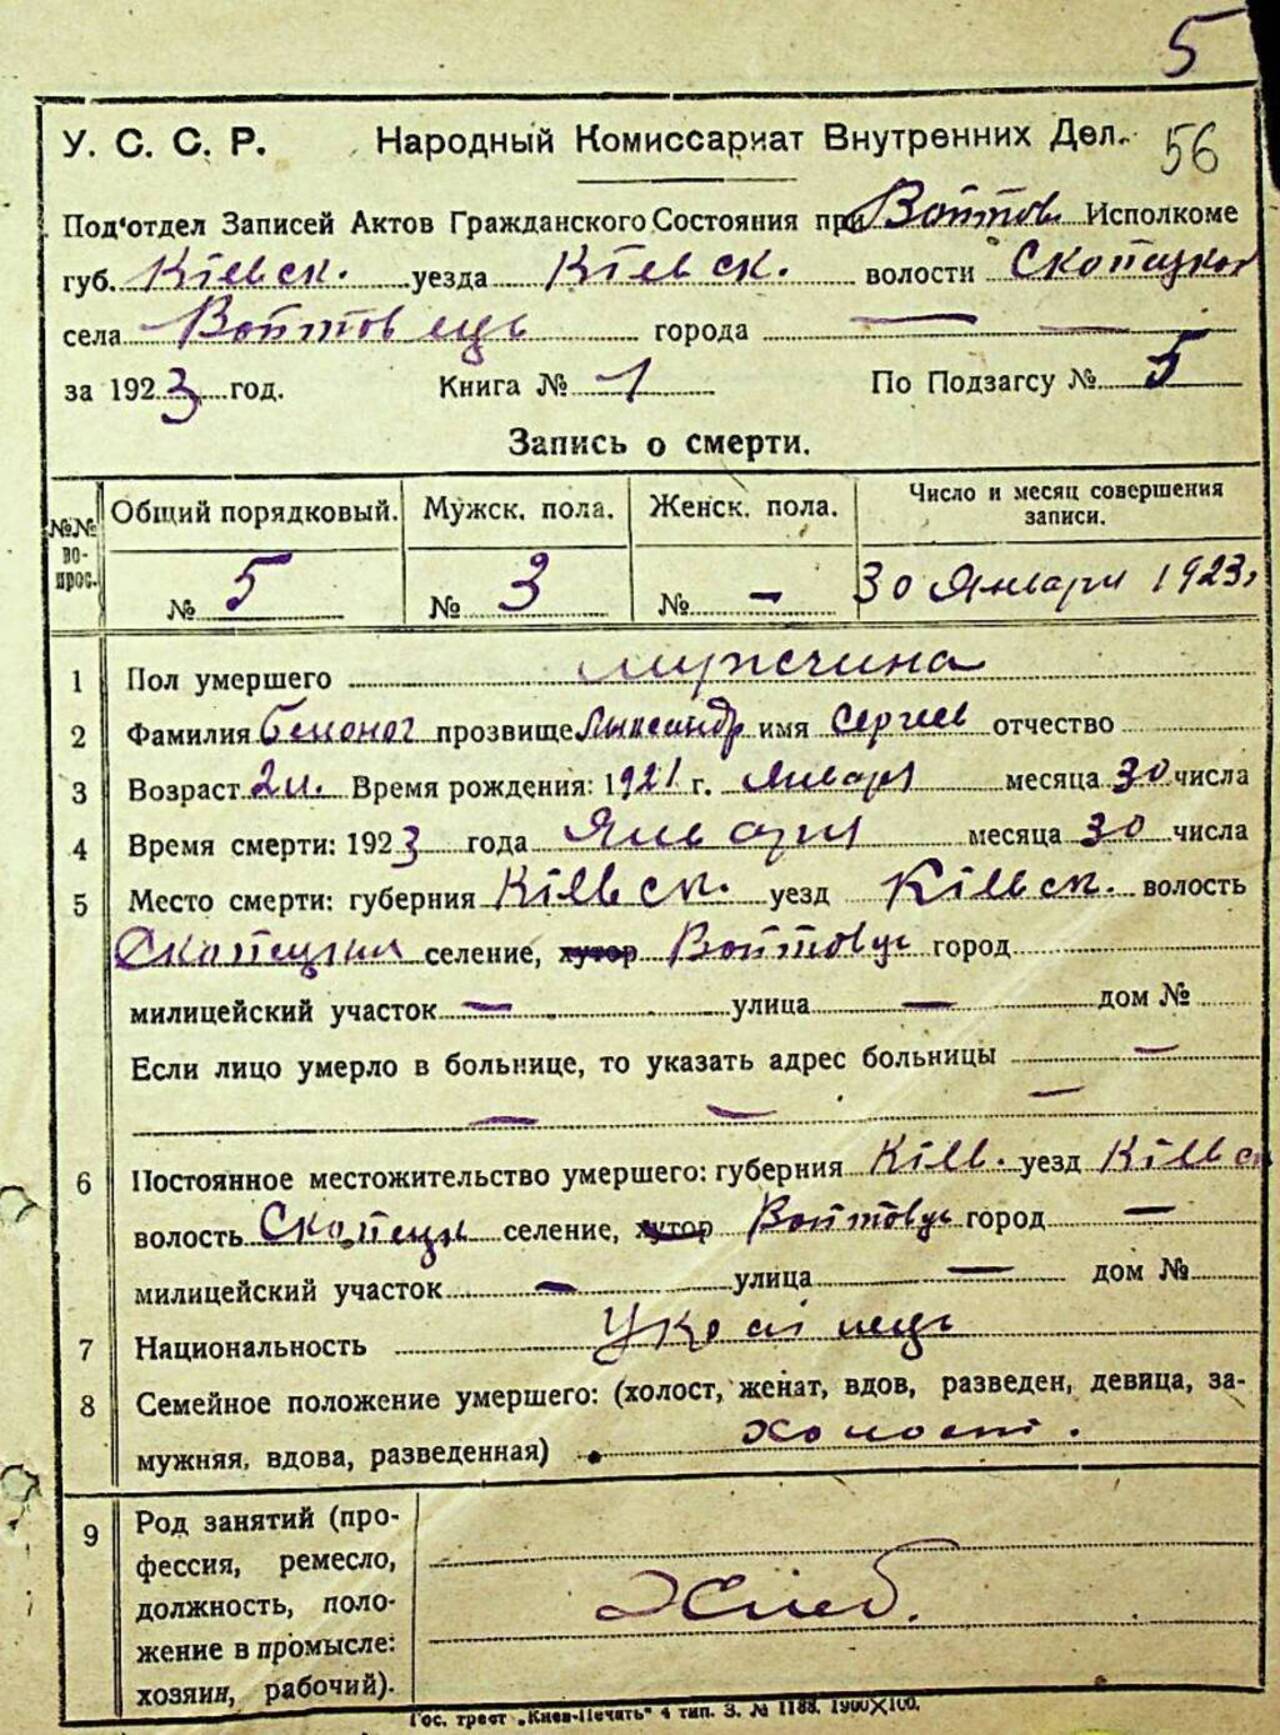 5
У. С. С. Р. Народный Комиссариат Внутренних Дел. 56
Под'отдел Записей Актов Гражданского Состояния при Войтов. Исполкоме
губ. Кіевск. уезда Кіевск. волости Скопецкой
села Войтовец города — —
за 1923 год. Книга № 1 По Подзагсу № 5
Запись о смерти.
№№ вопрос. Общий порядковый. Мужск. пола. Женск. пола. Число и месяц совершения записи.
№ 5 № 3 № - 30 Января 1923.
1 Пол умершего мужчина
2 Фамилия Белоног прозвище Александр имя Сергеев отчество
3 Возраст 2 Время рождения: 1921 г. Января месяца 30 числа
4 Время смерти: 1923 года Января месяца 30 числа
5 Место смерти: губерния Кіевск. уезд Кіевск. волость
Скопецкая селение, хутор Войтовци город
милицейский участок — улица — дом №
Если лицо умерло в больнице, то указать адрес больницы —
— — —
6 Постоянное местожительство умершего: губерния Кіев. уезд Кіевск
волость Скопецк селение, хутор Войтовци город —
милицейский участок — улица — дом №
7 Национальность Украінець
8 Семейное положение умершего: (холост, женат, вдов, разведен, девица, за-
мужняя, вдова, разведенная) холост.
9 Род занятий (про-
фессия, ремесло,
должность, поло- Хлеб.
жение в промысле:
хозяин, рабочий).
Гос. трест „Киев-Печать" 4 тип. З. № 1188. 1900×100.